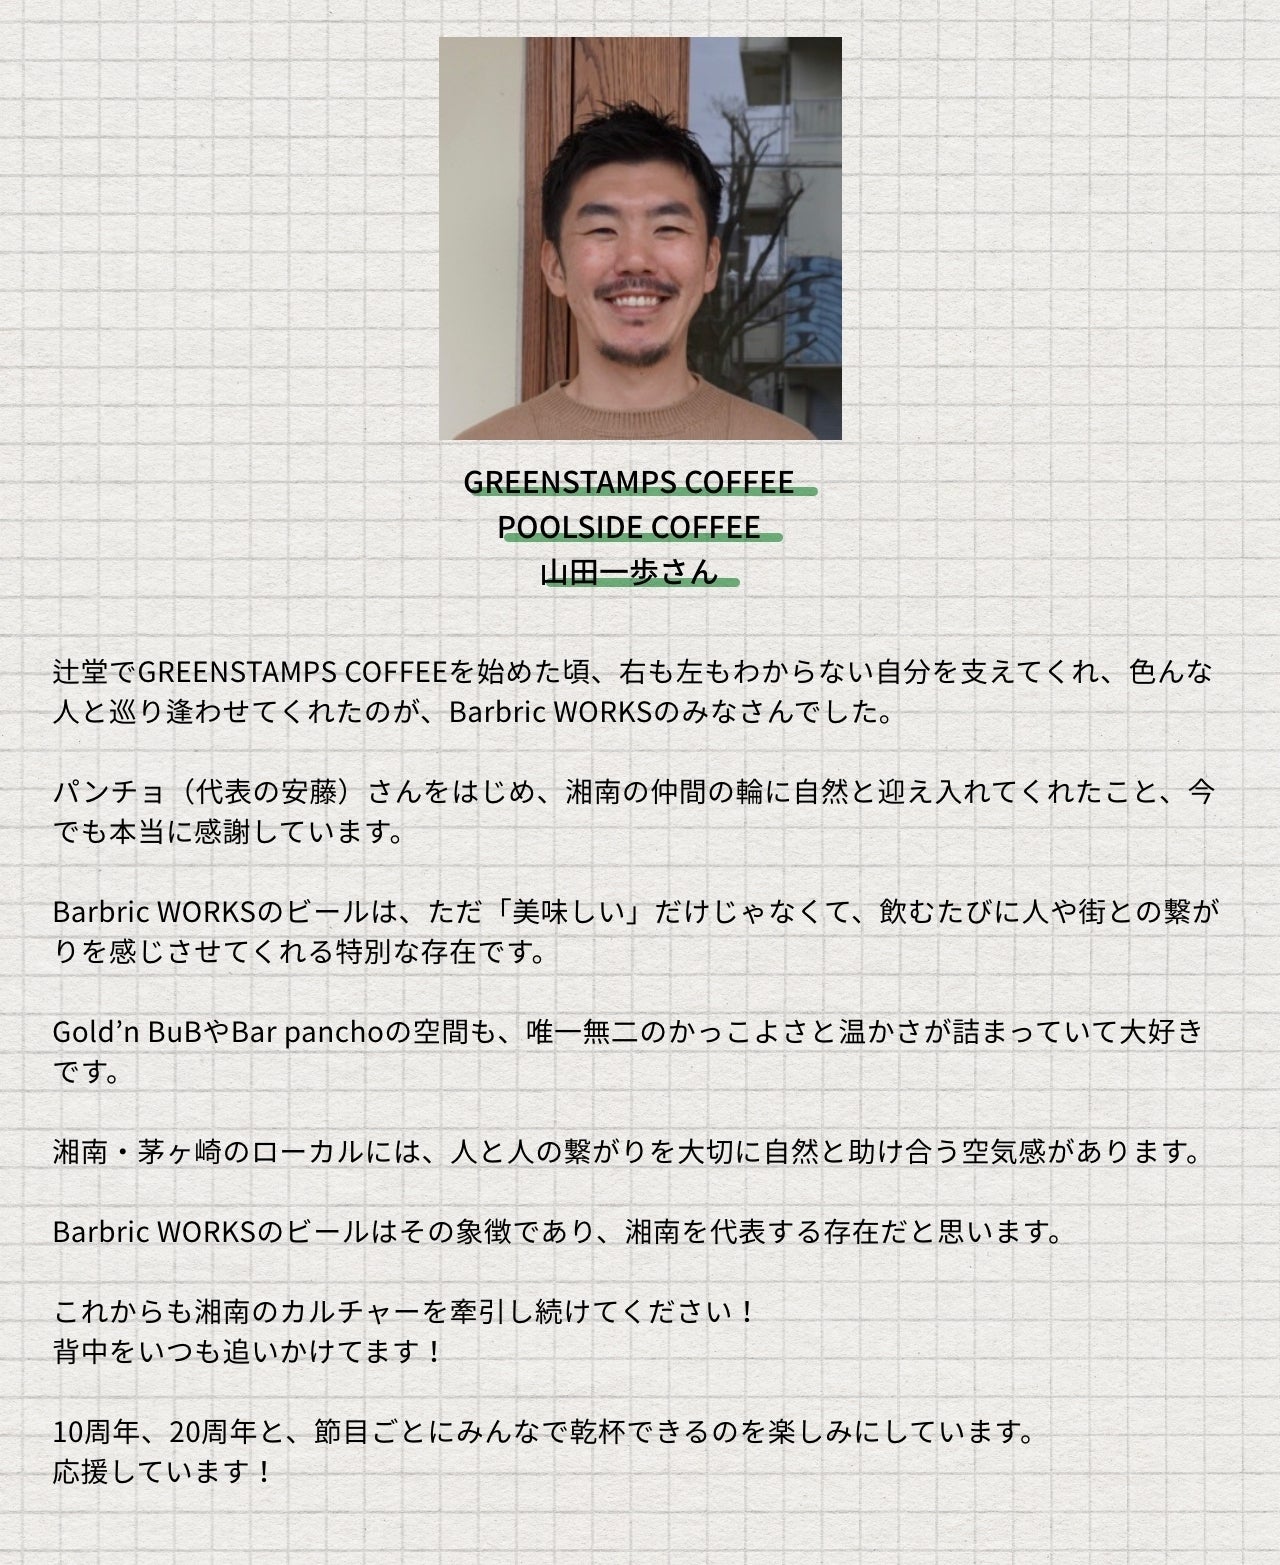 GREENSTAMPS COFFEE
POOLSIDE COFFEE
山田一歩さん
辻堂でGREENSTAMPS COFFEEを始めた頃、右も左もわからない自分を支えてくれ、色んな
人と巡り逢わせてくれたのが、Barbric WORKSのみなさんでした。
パンチョ（代表の安藤）さんをはじめ、湘南の仲間の輪に自然と迎え入れてくれたこと、今
でも本当に感謝しています。
Barbric WORKSのビールは、ただ「美味しい」だけじゃなくて、飲むたびに人や街との繋が
りを感じさせてくれる特別な存在です。
Gold’n BuBやBar panchoの空間も、唯一無二のかっこよさと温かさが詰まっていて大好き
です。
湘南・茅ヶ崎のローカルには、人と人の繋がりを大切に自然と助け合う空気感があります。
Barbric WORKSのビールはその象徴であり、湘南を代表する存在だと思います。
これからも湘南のカルチャーを牽引し続けてください！
背中をいつも追いかけてます！
10周年、20周年と、節目ごとにみんなで乾杯できるのを楽しみにしています。
応援しています！